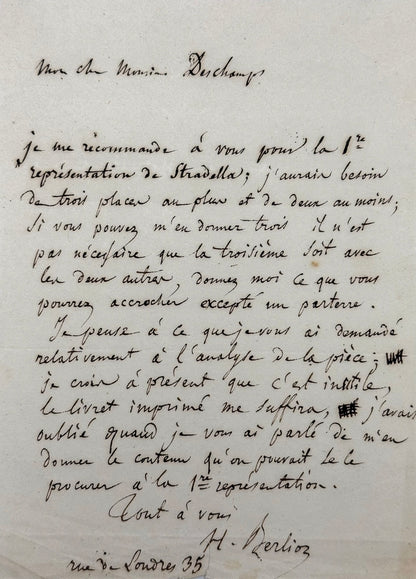 Mon cher Monsieur Deschamps
je me recommande à vous pour la 1re
représentation de Stradella; j'aurais besoin
de trois places au plus et de deux au moins;
Si vous pouvez m'en donner trois il n'est
pas nécessaire que la troisième soit avec
les deux autres, donnez moi ce que vous
pourrez accrocher excepté un parterre.
Je pense à ce que je vous ai demandé
relativement à l'analyse de la pièce;
je crois à présent que c'est inutile,
le livret imprimé me suffira, j'avais
oublié quand je vous ai parlé de m'en
donner le contenu qu'on pouvait se le
procurer à la 1re représentation.
Tout à vous
H. Berlioz
rue de Londres 35